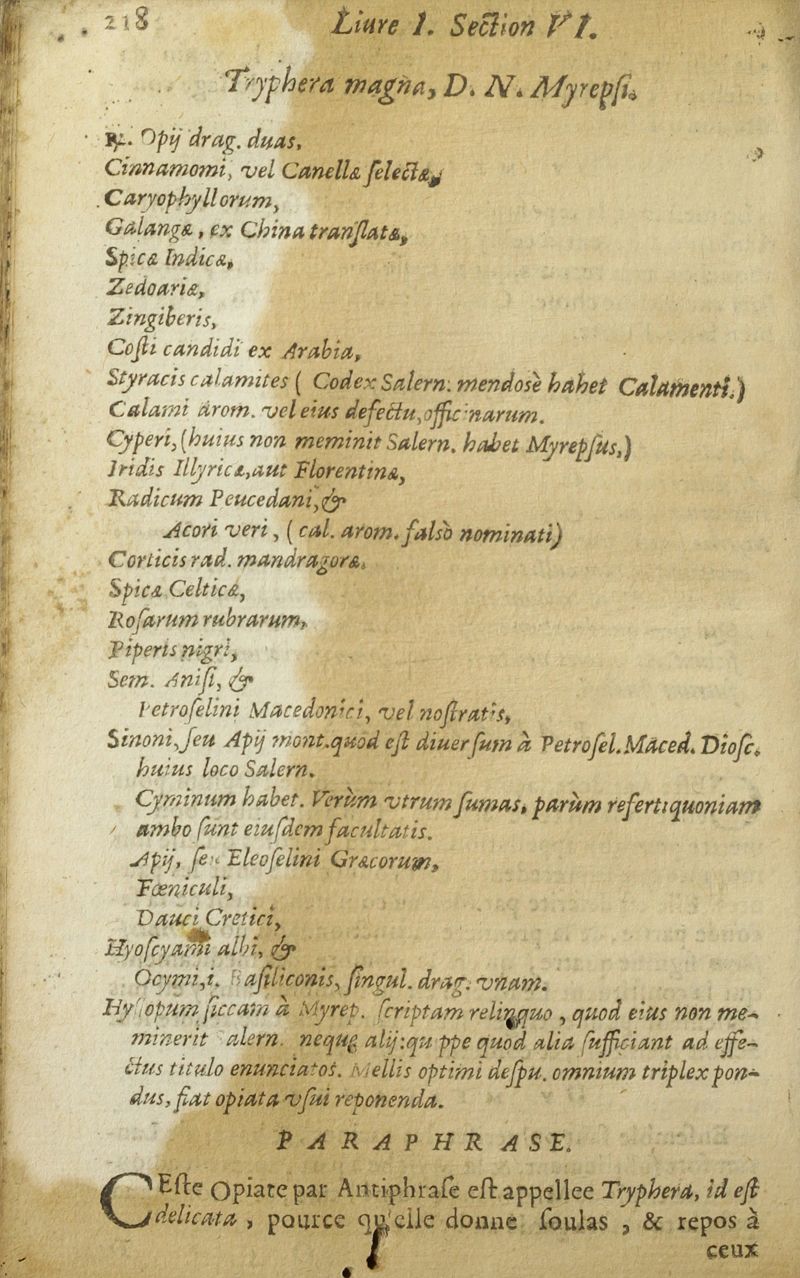 218 Liure I. Section VI.
Tryphera magna, D. N. Myrepsi.
℞. Opij drag. duas,
Cinnamomi, vel Canellæ selectæ,
Caryophyllorum,
Galangæ, ex China translatæ,
Spicæ Indicæ,
Zedoariæ,
Zingiberis,
Costi candidi ex Arabia,
Styracis calamites ( Codex Salern. mendosè habet Calamenti.)
Calami arom. vel eius defectu, officinarum.
Cyperi, (huius non meminit Salern. habet Myrepsus,)
Iridis Illyricæ, aut Florentinæ,
Radicum Peucedani, &
Acori veri, ( cal. arom. falsò nominati)
Corticis rad. mandragoræ.
Spicæ Celticæ,
Rosarum rubrarum,
Piperis nigri,
Sem. Anisi, &
Petroselini Macedonici, vel nostratis,
Sinoni, seu Apij mont. quod est diuersum à Petrosel. Maced. Diosc.
huius loco Salern.
Cyminum habet. Verùm vtrum sumas, parùm refert: quoniam
ambo sunt eiusdem facultatis.
Apij, seu Eleoselini Græcorum,
Fœniculi,
Dauci Cretici,
Hyoscyami albi, &
Ocymi, i. Basiliconis, singul. drag. vnam.
Hyssopum siccam à Myrep. scriptam relinquo, quod eius non me-
minerit Salern. neque alij: quippe quod alia sufficiant ad effe-
ctus titulo enunciatos. Mellis optimi despu. omnium triplex pon-
dus, fiat opiata vsui reponenda.
PARAPHRASE.
CEste Opiate par Antiphrase est appellee Tryphera, id est
delicata, pource qu'elle donne soulas, & repos à
ceux